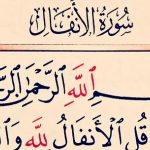 سُورَةُ الْأَنْفَالِ
اللَّهِ الرَّحْمَنِ
قُلِ الْأَنْفَالُ لِلَّهِ